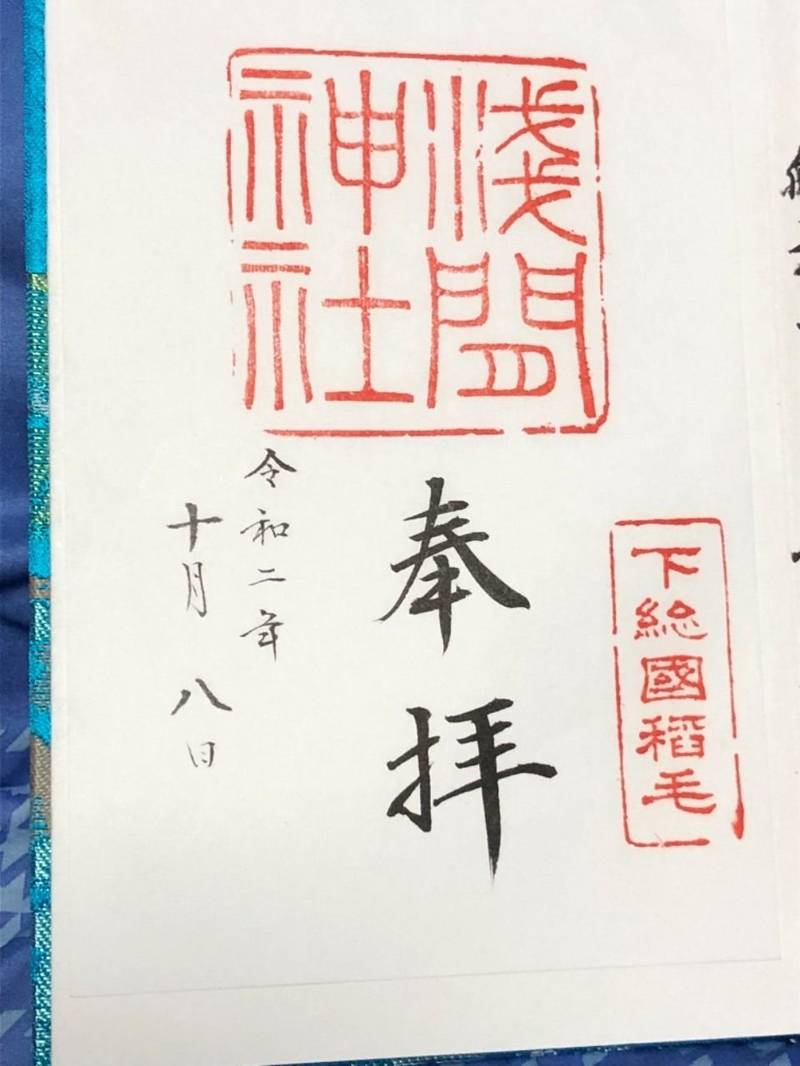 下総國稻毛
淺間
神社
奉拝
令和二年
十月八日